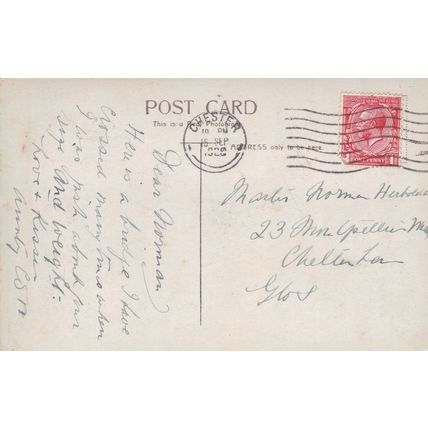 POST CARD
This is a Real Photograph
ADDRESS only to be here.
CHESTER
10 PM
15 SEP
ONE PENNY
Dear Norman
Here is a bridge I have
Crossed many times when
I was just about your
size And weight.
Love & Kisses
Aunty
Master Norman
23
Cheltenham
Glos